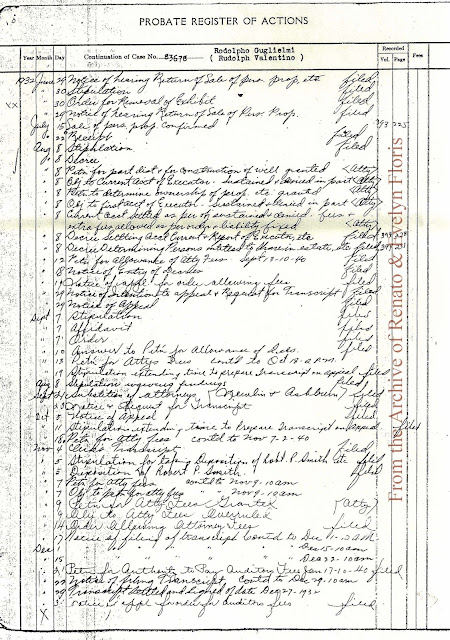 PROBATE REGISTER OF ACTIONS
Year Month Day
Continuation of Case No. 83678
Rodolpho Guglielmi
( Rudolph Valentino )
Recorded
Vol. Page
Fees
1932 June 29 Notice of hearing Return of Sale of pers prop, etc filed
30 Stipulation filed
XX 30 Order for Removal of Exhibit filed
29 Notice of hearing Return of Sale of Pers Prop. filed
July 15 Sale of pers prop. confirmed 225
22 Receipt filed
Aug 8 Stipulation filed
8 Decree
8 Petn for part dist & for construction of will granted (Atty)
8 Obj to Current acct of Executor - sustained & denied in part (Atty)
8 Petn to determine ownership of prop. etc granted (Atty)
8 Obj to first acct of Executor - sustained & denied in part (Atty)
8 Current acct settled as per obj sustained & denied. fees &
extra fees allowed as per order & liability fixed (Atty)
8 Decree Settling acct Current & Report of Executor, etc filed
8 Decree Determining Persons entitled to share in estate, etc filed
12 Petn for allowance of Atty Fees Sept 13-10-40
18 Notice of Entry of Decrees filed
19 Notice of appl for order allowing fees filed
29 Notice of Intention to appeal & Request for Transcript filed
29 Notice of Appeal filed
Sept 7 Stipulation filed
7 Affidavit filed
7 Order filed
10 Answer to Petn for Allowance of fees. filed
13 Petn for Attys Fees contd to Oct
19 Stipulation extending time to prepare transcript on appeal filed
Aug 8 Stipulation filed
Sept Substitution of attorneys filed
Notice & Request for Transcript filed
Oct 3 Notice of Appeal filed
11 Stipulation extending time to Prepare Transcript on Appeal filed
Petn for Atty fees contd to Nov 7-2-40
Nov 4 Clerk's Transcript filed
Stipulation for taking Deposition of Robt. P. Smith etc filed
Deposition of Robert P. Smith. filed
7 Petn for Atty fees contd to Nov 9-10am
7 Obj to petn for atty fees " " Nov 9-10am
9 Petn for Atty Fees Granted (Atty)
9 Obj to Atty Fees Overruled
14 Order Allowing Attorney Fees filed
17 Notice of filing of transcript Contd to Dec
Dec " " " Dec 15-10am
" " " Dec 22-10am
Petn for Authority to Pay Auditors Fees Jan 17-10-40 filed
22 Notice of filing Transcript, Contd to Dec 29-10am
29 Transcript settled and signed of date Dec 27-1932
notice of appl for order for auditors fees filed
X
From the Archive of Renato & Evelyn Floris